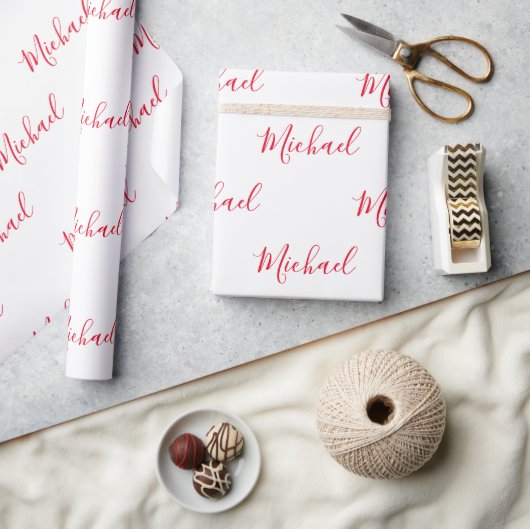 Michael
Michael
Michael
Michael
Michael
Michael
Michael
Michael
Michael
hael
M
Michael